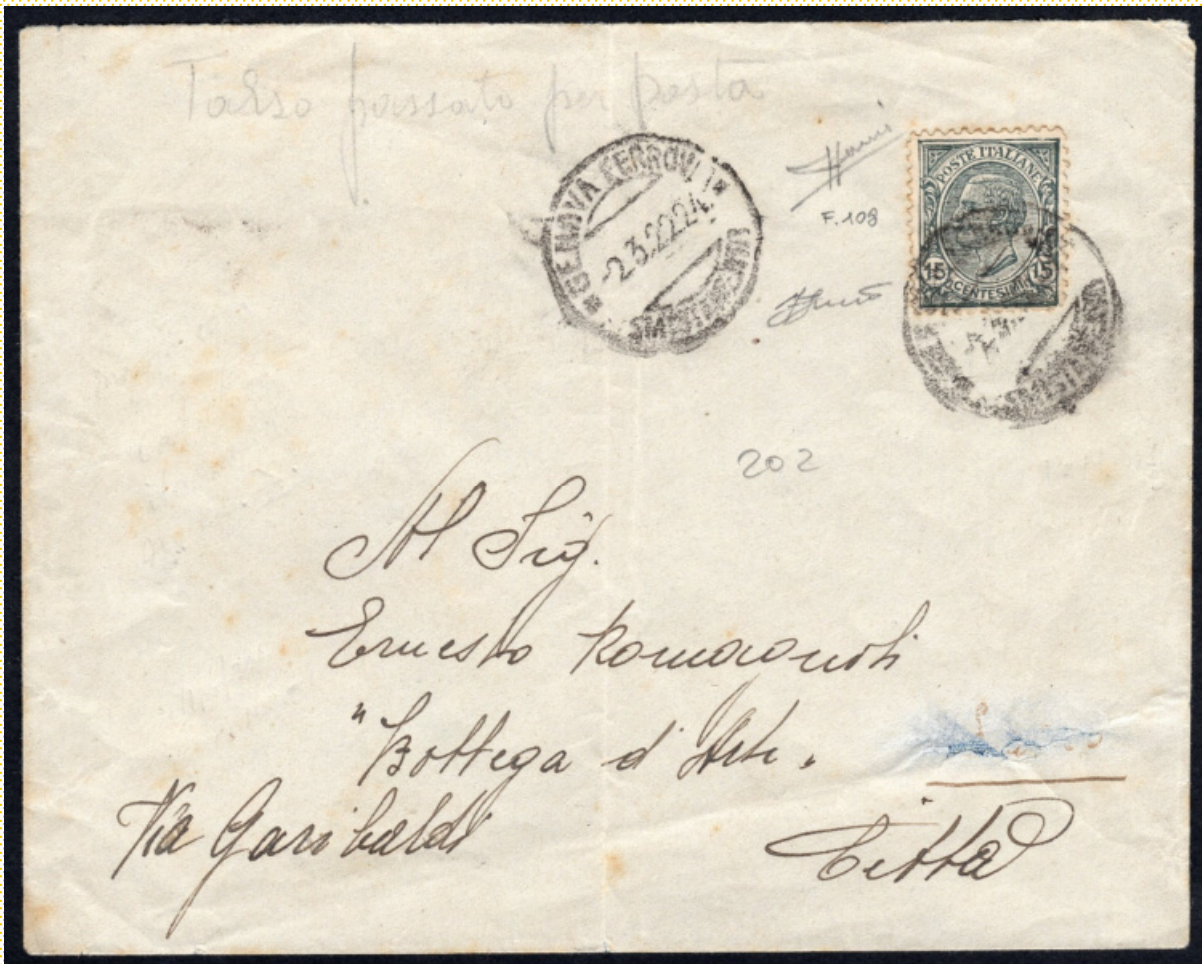 Falso passato per posta
GENOVA FERROVIA
-2.3.22.24.
F.108
POSTE ITALIANE
15 15
CENTESIMI
202
Al Sig.
Ernesto Romagnoli
"Bottega d'Arte"
Via Garibaldi
Città